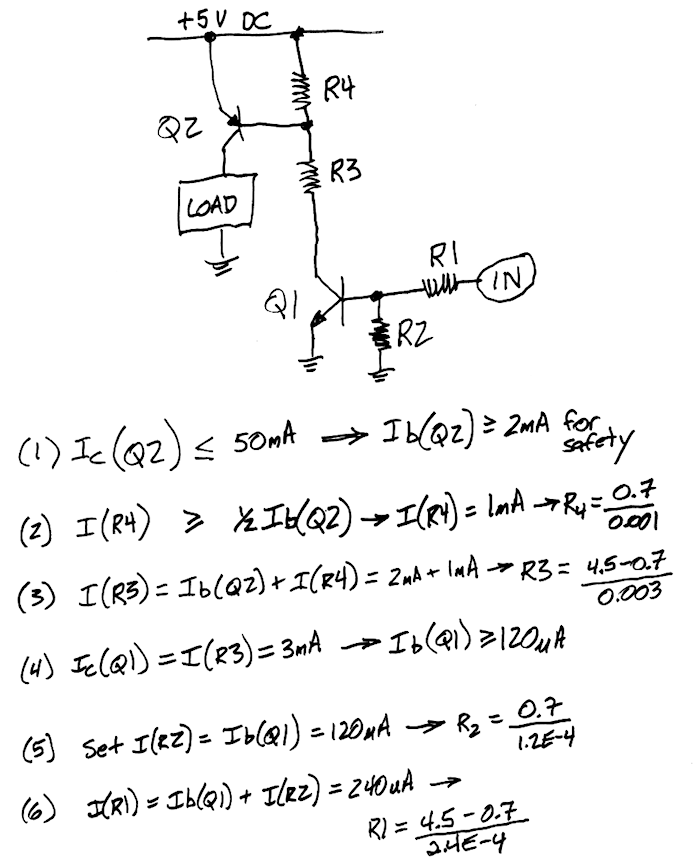 +5V DC
R4
Q2
R3
LOAD
R1
IN
Q1
R2
(1) Ic(Q2) ≤ 50mA → Ib(Q2) ≥ 2mA for safety
(2) I(R4) ≥ ½Ib(Q2) → I(R4) = 1mA → R4 = 0.7/0.001
(3) I(R3) = Ib(Q2) + I(R4) = 2mA + 1mA → R3 = 4.5-0.7/0.003
(4) Ic(Q1) = I(R3) = 3mA → Ib(Q1) ≥ 120uA
(5) Set I(R2) = Ib(Q1) = 120uA → R2 = 0.7/1.2E-4
(6) I(R1) = Ib(Q1) + I(R2) = 240uA →
R1 = 4.5-0.7/2.4E-4